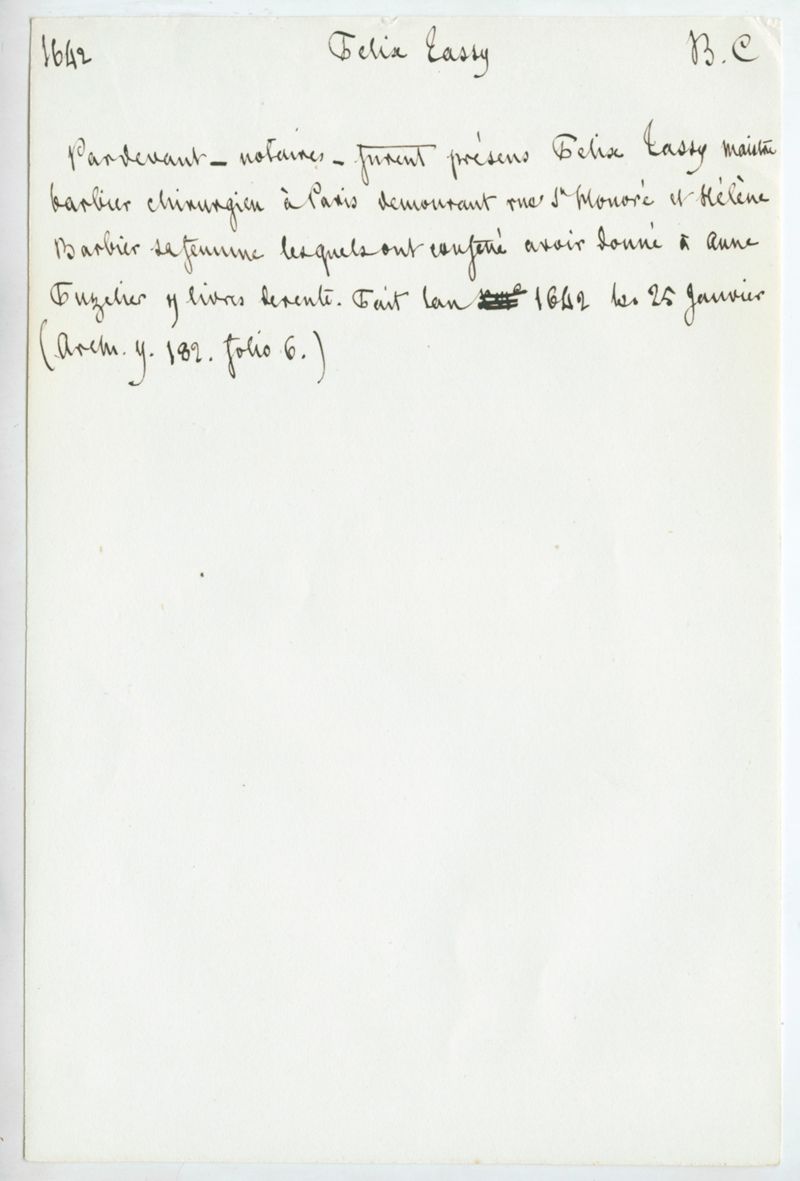 1642 Felix Tassy B. C
Pardevant _ notaires _ furent présens Felix Tassy maistre
barbier chirurgien à Paris demourant rue St Honoré et Hélène
Barbier sa femme lesquels ont confessé avoir donné à Anne
Fuzelier livres de rente. Fait lan 1642 le 25 Janvier
(Arch. y. 182. folio 6.)